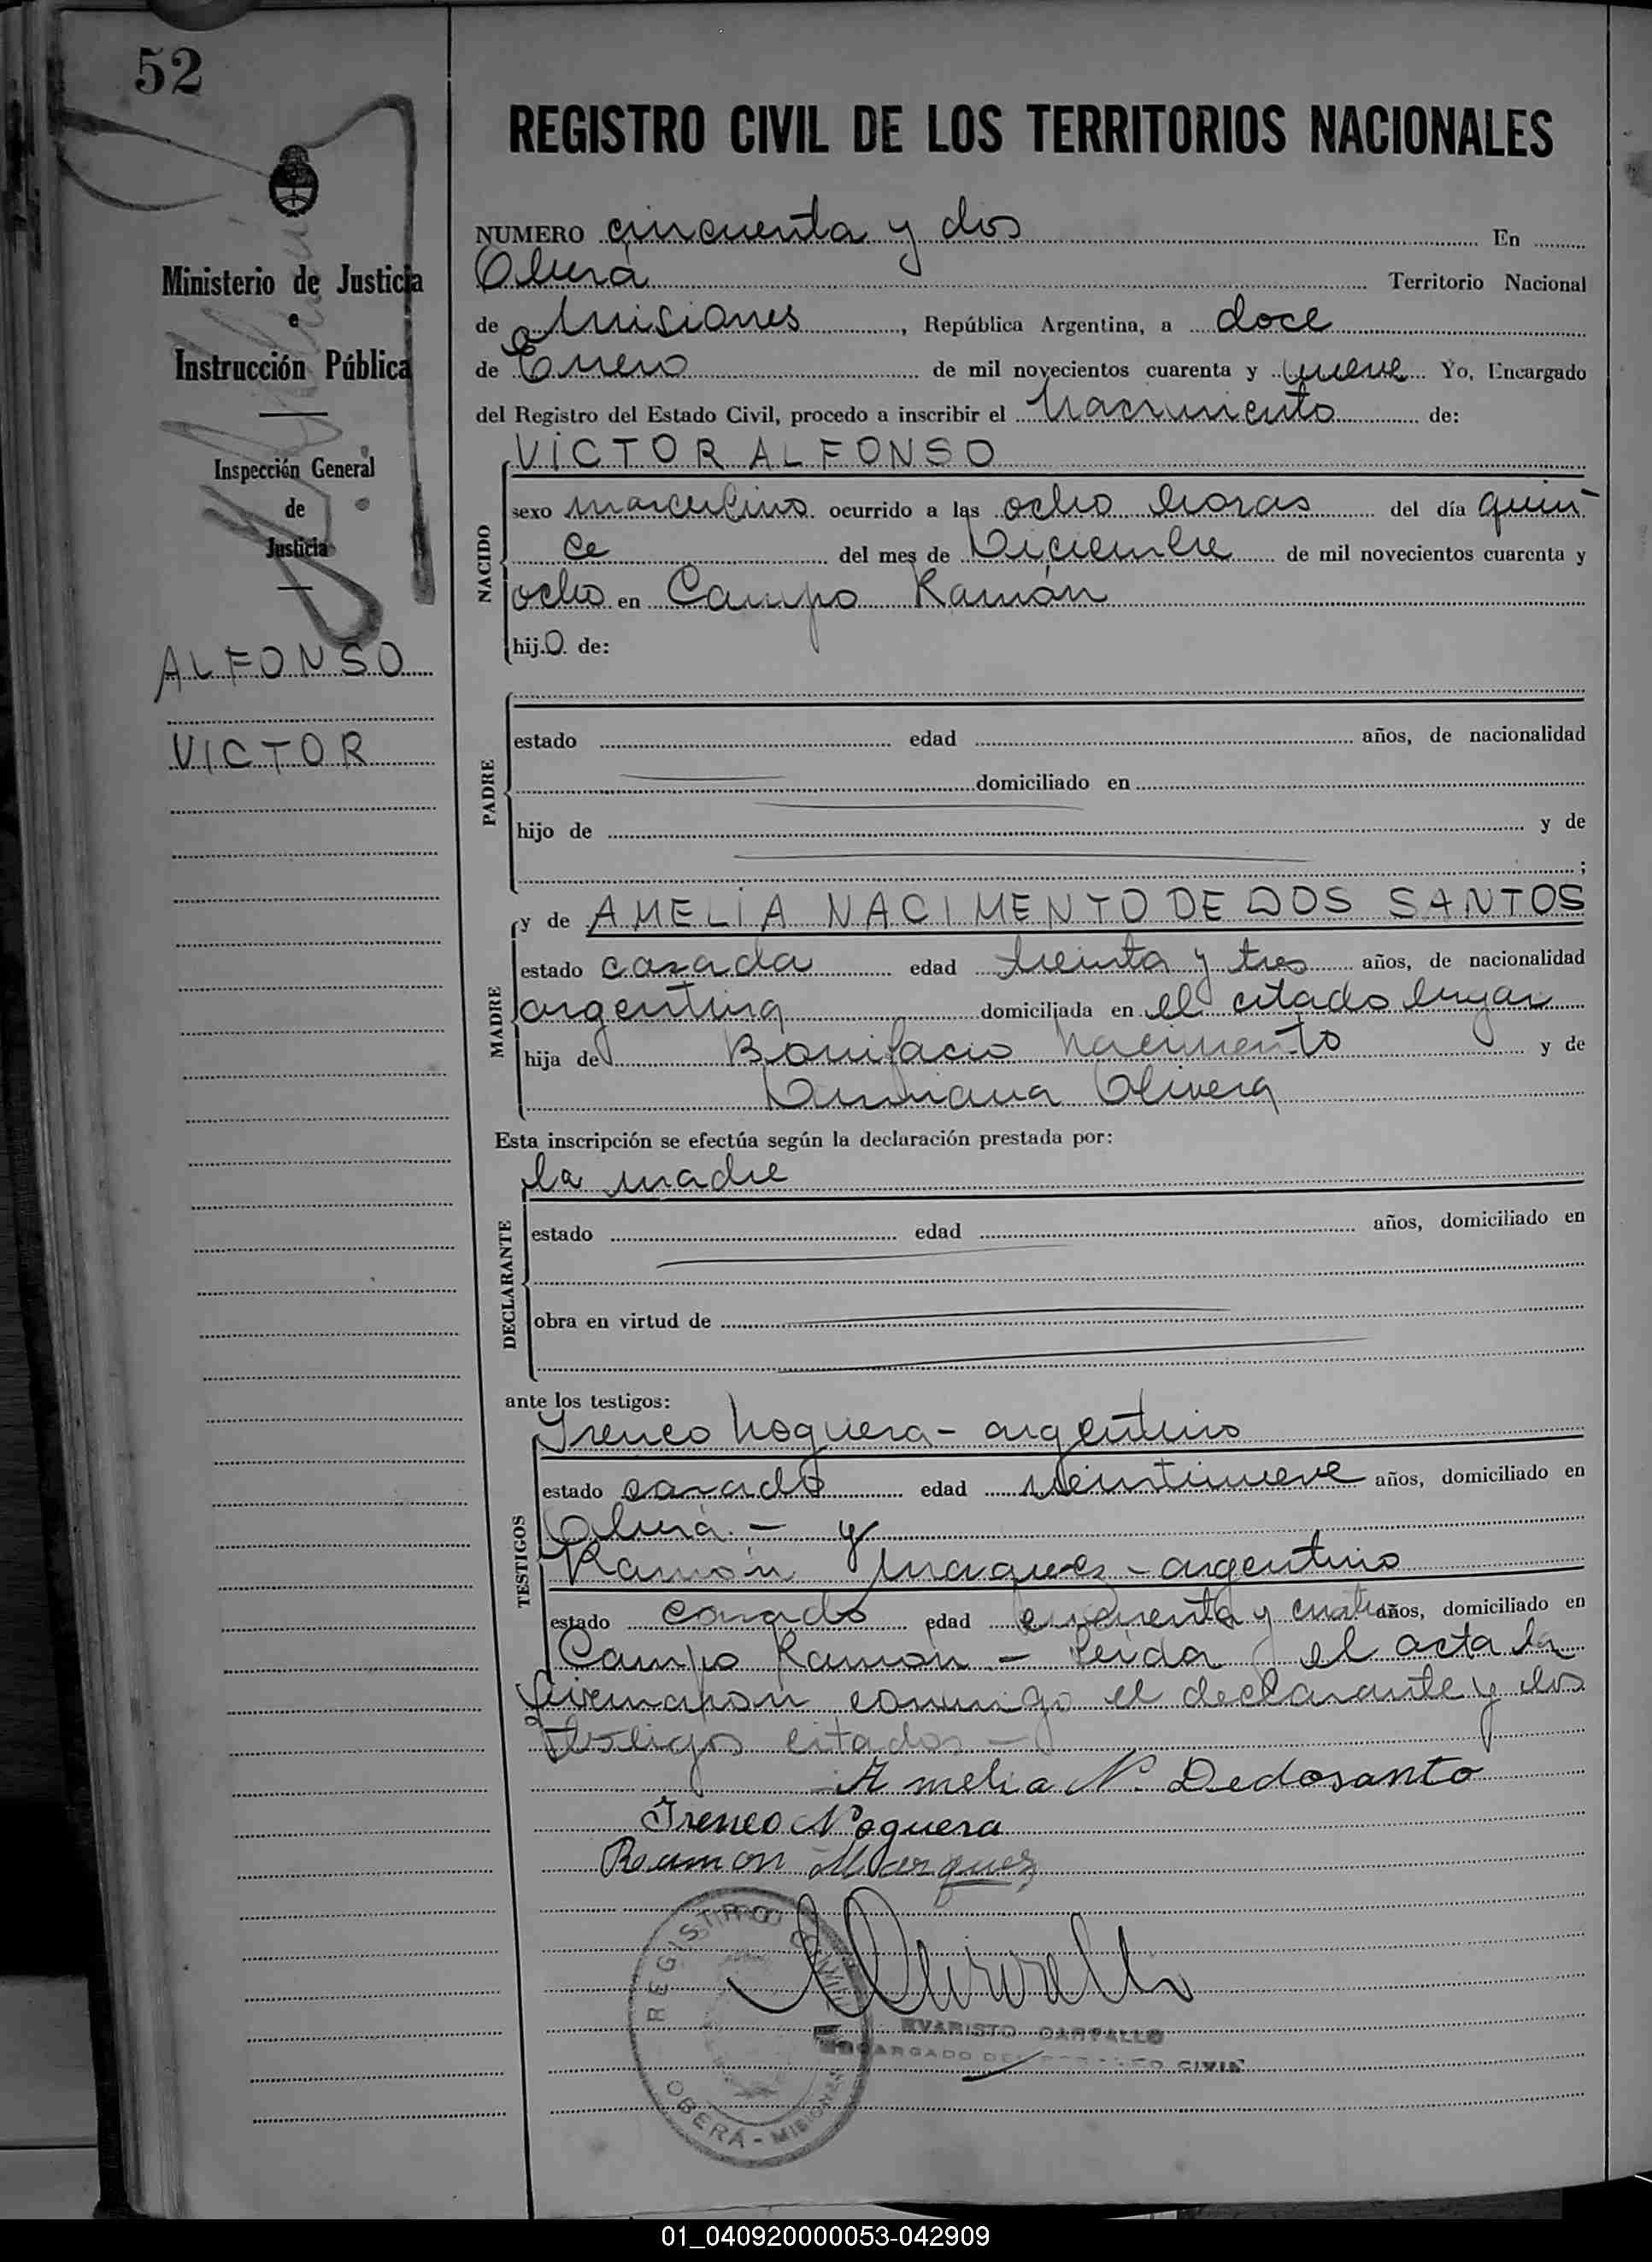 52
REGISTRO CIVIL DE LOS TERRITORIOS NACIONALES
NUMERO cincuenta y dos En
Oberá Territorio Nacional
de Misiones, República Argentina, a doce
de Enero de mil novecientos cuarenta y nueve Yo, Encargado
del Registro del Estado Civil, procedo a inscribir el Nacimiento de:
Ministerio de Justicia
e
Instrucción Pública
Inspección General
de
Justicia
ALFONSO
VICTOR
NACIDO
VICTOR ALFONSO
sexo masculino ocurrido a las ocho horas del día quin
ce del mes de Diciembre de mil novecientos cuarenta y
ocho en Campo Ramón
hijo de:
PADRE
estado edad años, de nacionalidad
domiciliado en
hijo de y de
;
MADRE
y de AMELIA NACIMENTO DE DOS SANTOS
estado casada edad treinta y tres años, de nacionalidad
argentina domiciliada en el citado lugar
hija de Bonifacio Nacimento y de
Olivera
Esta inscripción se efectúa según la declaración prestada por:
la madre
DECLARANTE
estado edad años, domiciliado en
obra en virtud de
ante los testigos:
TESTIGOS
Ireneo Noguera - argentino
estado casado edad veintinueve años, domiciliado en
Oberá. - y
Ramón Maquez - argentino
estado casado edad cuarenta y cuatro años, domiciliado en
Campo Ramón - Leida el acta la
firmaron conmigo el declarante y los
testigos citados -
Amelia N. Dedosanto
Ireneo Noguera
Ramon Marquez
REGISTRO CIVIL
OBERÁ - MISIONES
EVARISTO CARVALLO
ENCARGADO DEL REGISTRO CIVIL
01_040920000053-042909